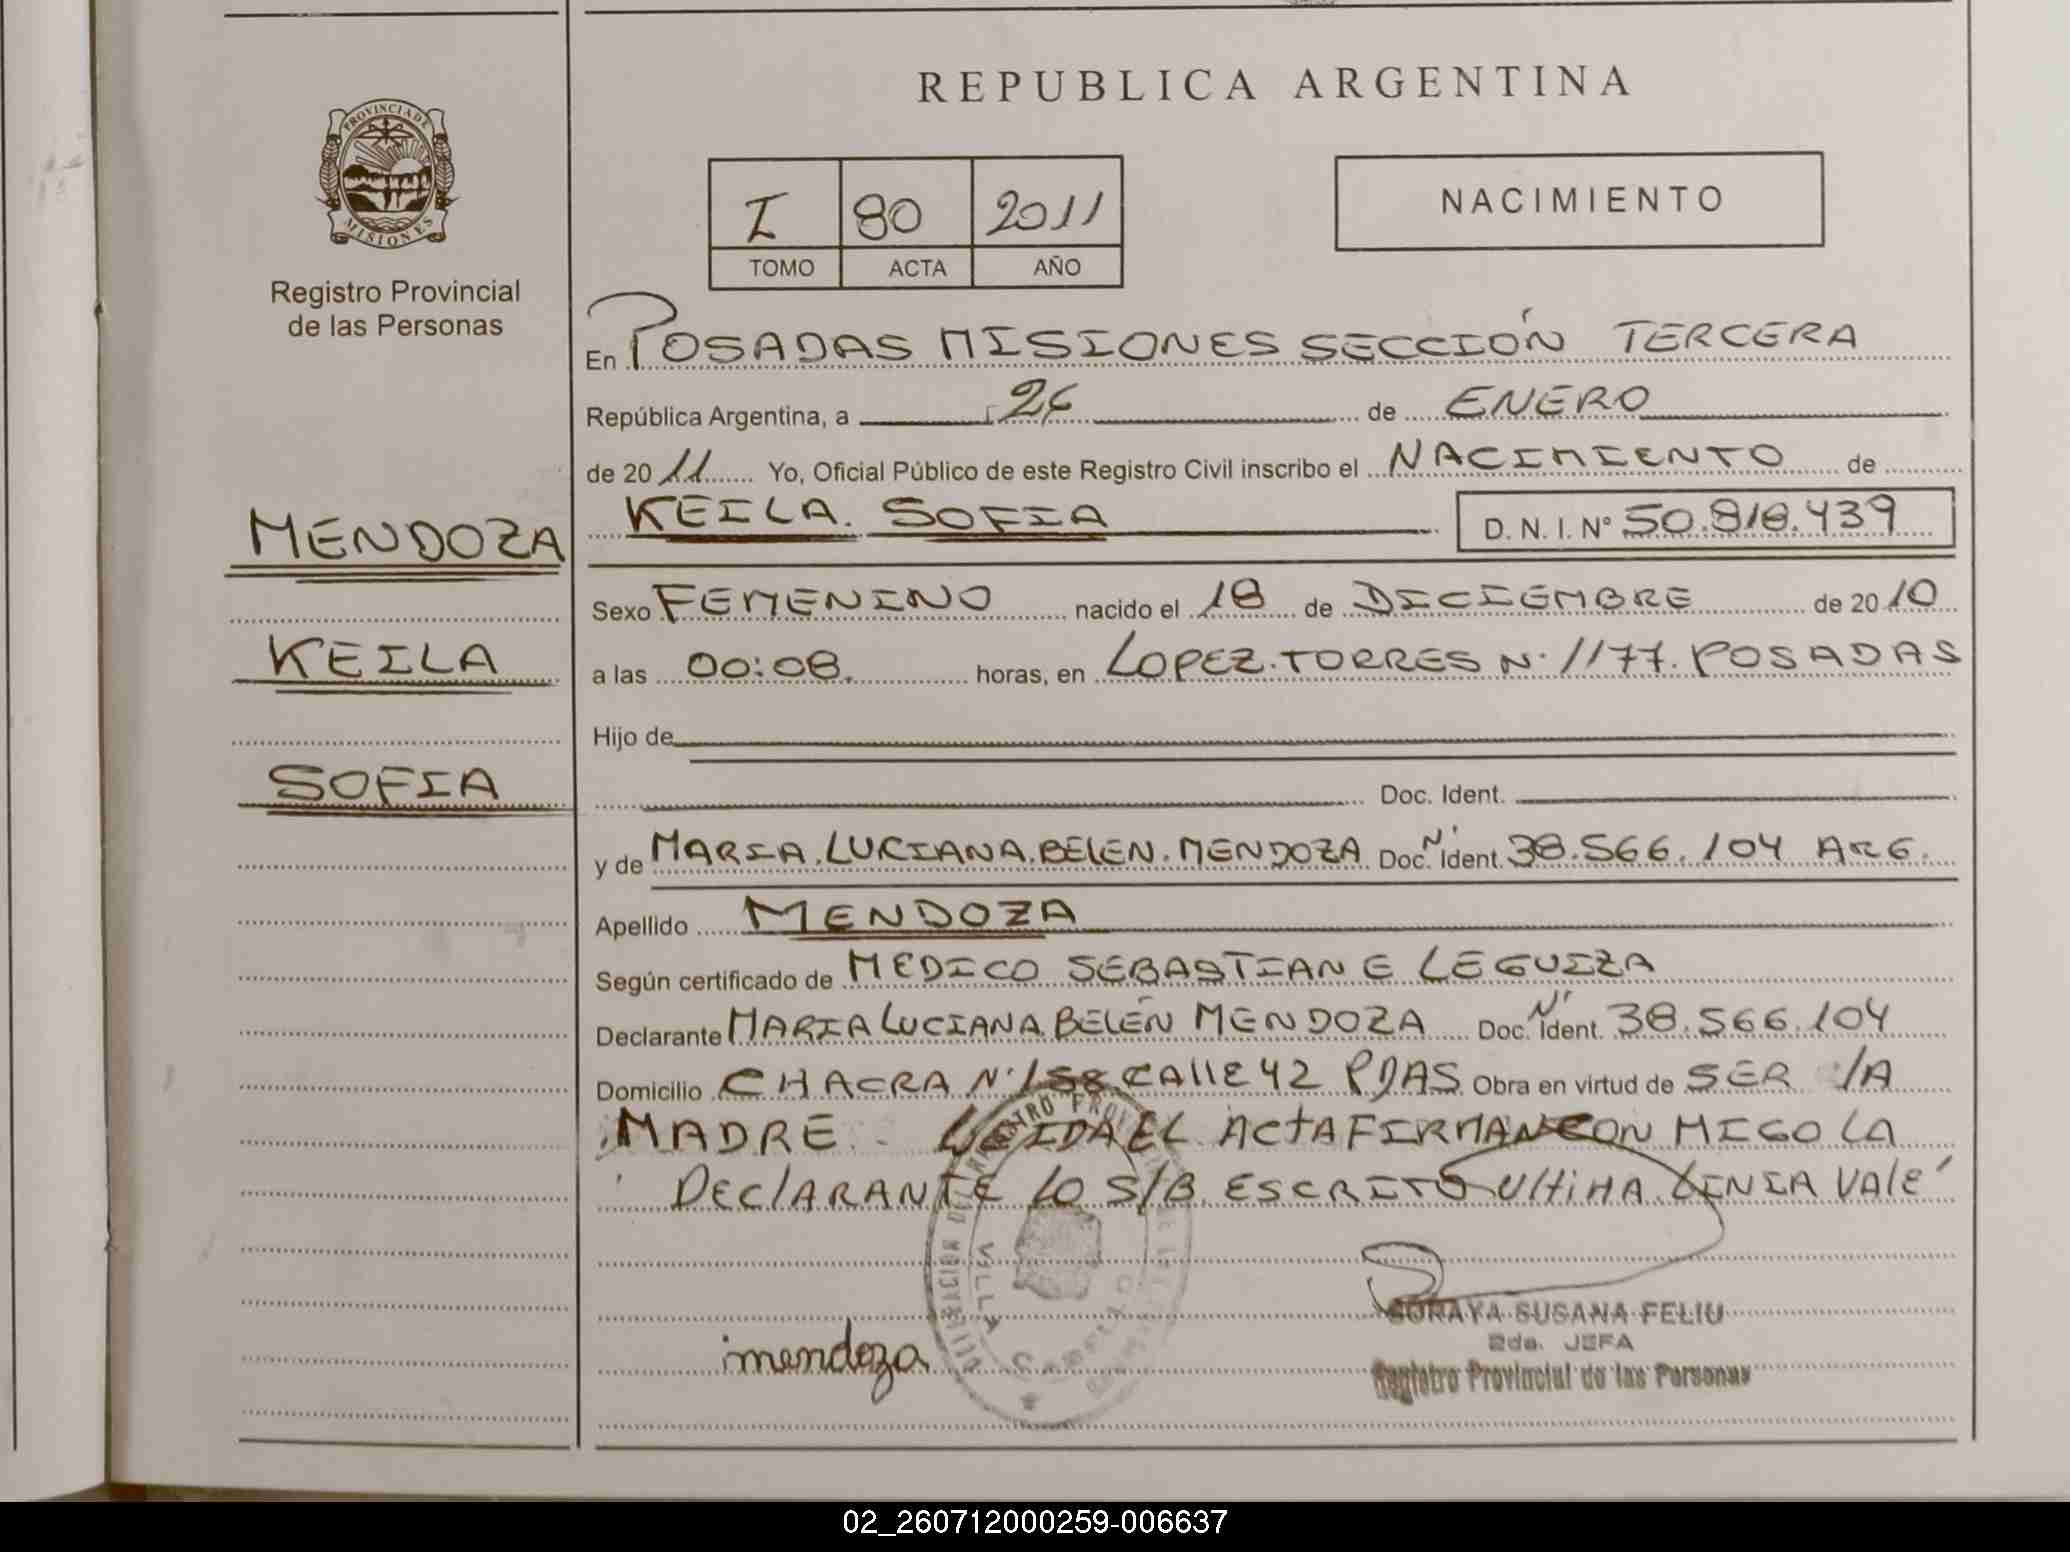 REPUBLICA ARGENTINA
PROVINCIA DE
MISIONES
Registro Provincial
de las Personas
I 80 2011
TOMO ACTA AÑO
NACIMIENTO
En POSADAS MISIONES SECCIÓN TERCERA
República Argentina, a 26 de ENERO
de 2011 Yo, Oficial Público de este Registro Civil inscribo el NACIMIENTO de
KEILA. SOFIA D. N. I. N° 50.818.439
MENDOZA
Sexo FEMENINO nacido el 18 de DICIEMBRE de 2010
KEILA
a las 00:08. horas, en LOPEZ.TORRES N. 1177. POSADAS
Hijo de
SOFIA
Doc. Ident.
y de MARIA.LUCIANA.BELEN.MENDOZA Doc. N. Ident. 38.566.104 ARG.
Apellido MENDOZA
Según certificado de MEDICO SEBASTIAN E LEGUIZA
Declarante MARIA LUCIANA.BELÉN MENDOZA Doc. N. Ident. 38.566.104
Domicilio CHACRA N.158.CALLE 42 PDAS. Obra en virtud de SER LA
MADRE. LEIDA EL ACTA FIRMAN CON MIGO LA
DECLARANTE LO S/B. ESCRITO ULTIMA LINIA VALE
SORAYA SUSANA FELIU
2da. JEFA
mendoza
Registro Provincial de las Personas
02_260712000259-006637